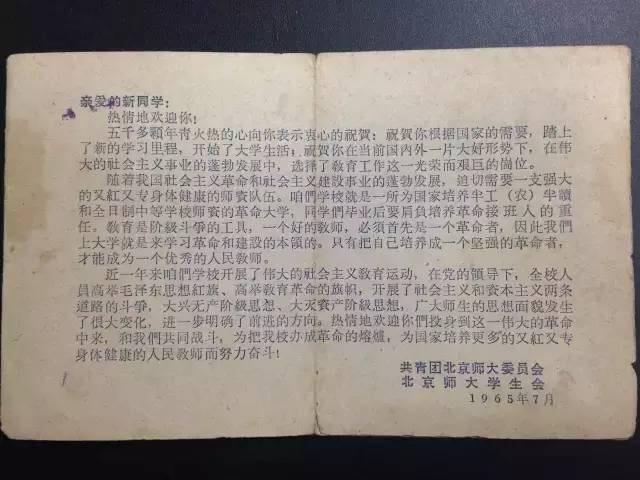 亲爱的新同学：
热情地欢迎你！
五千多顆年青火热的心向你表示衷心的祝賀：祝賀你根据国家的需要，踏上
了新的学习里程，开始了大学生活；祝賀你在当前国内外一片大好形势下，在伟
大的社会主义事业的蓬勃发展中，选择了教育工作这一光荣而艰巨的崗位。
随着我国社会主义革命和社会主义建設事业的蓬勃发展，迫切需要一支强大
的又紅又专身体健康的师資队伍。咱們学校就是一所为国家培养半工（农）半讀
和全日制中等学校师資的革命大学，同学們毕业后要肩負培养革命接班人的重
任。教育是阶級斗爭的工具，一个好的教师，必須首先是一个革命者，因此我們
上大学就是来学习革命和建設的本領的。只有把自己培养成一个坚强的革命者，
才能成为一个优秀的人民教师。
近一年来咱們学校开展了伟大的社会主义教育运动，在党的領导下，全校人
員高举毛泽东思想紅旗、高举教育革命的旗帜，开展了社会主义和資本主义两条
道路的斗爭，大兴无产阶級思想、大灭資产阶級思想，广大师生的思想面貌发生
了很大变化，进一步明确了前进的方向。热情地欢迎你們投身到这一伟大的革命
中来，和我們共同战斗，为把我校办成革命的熔爐，为国家培养更多的又紅又专
身体健康的人民教师而努力奋斗！
共青团北京师大委員会
北京师大学生会
1965年7月